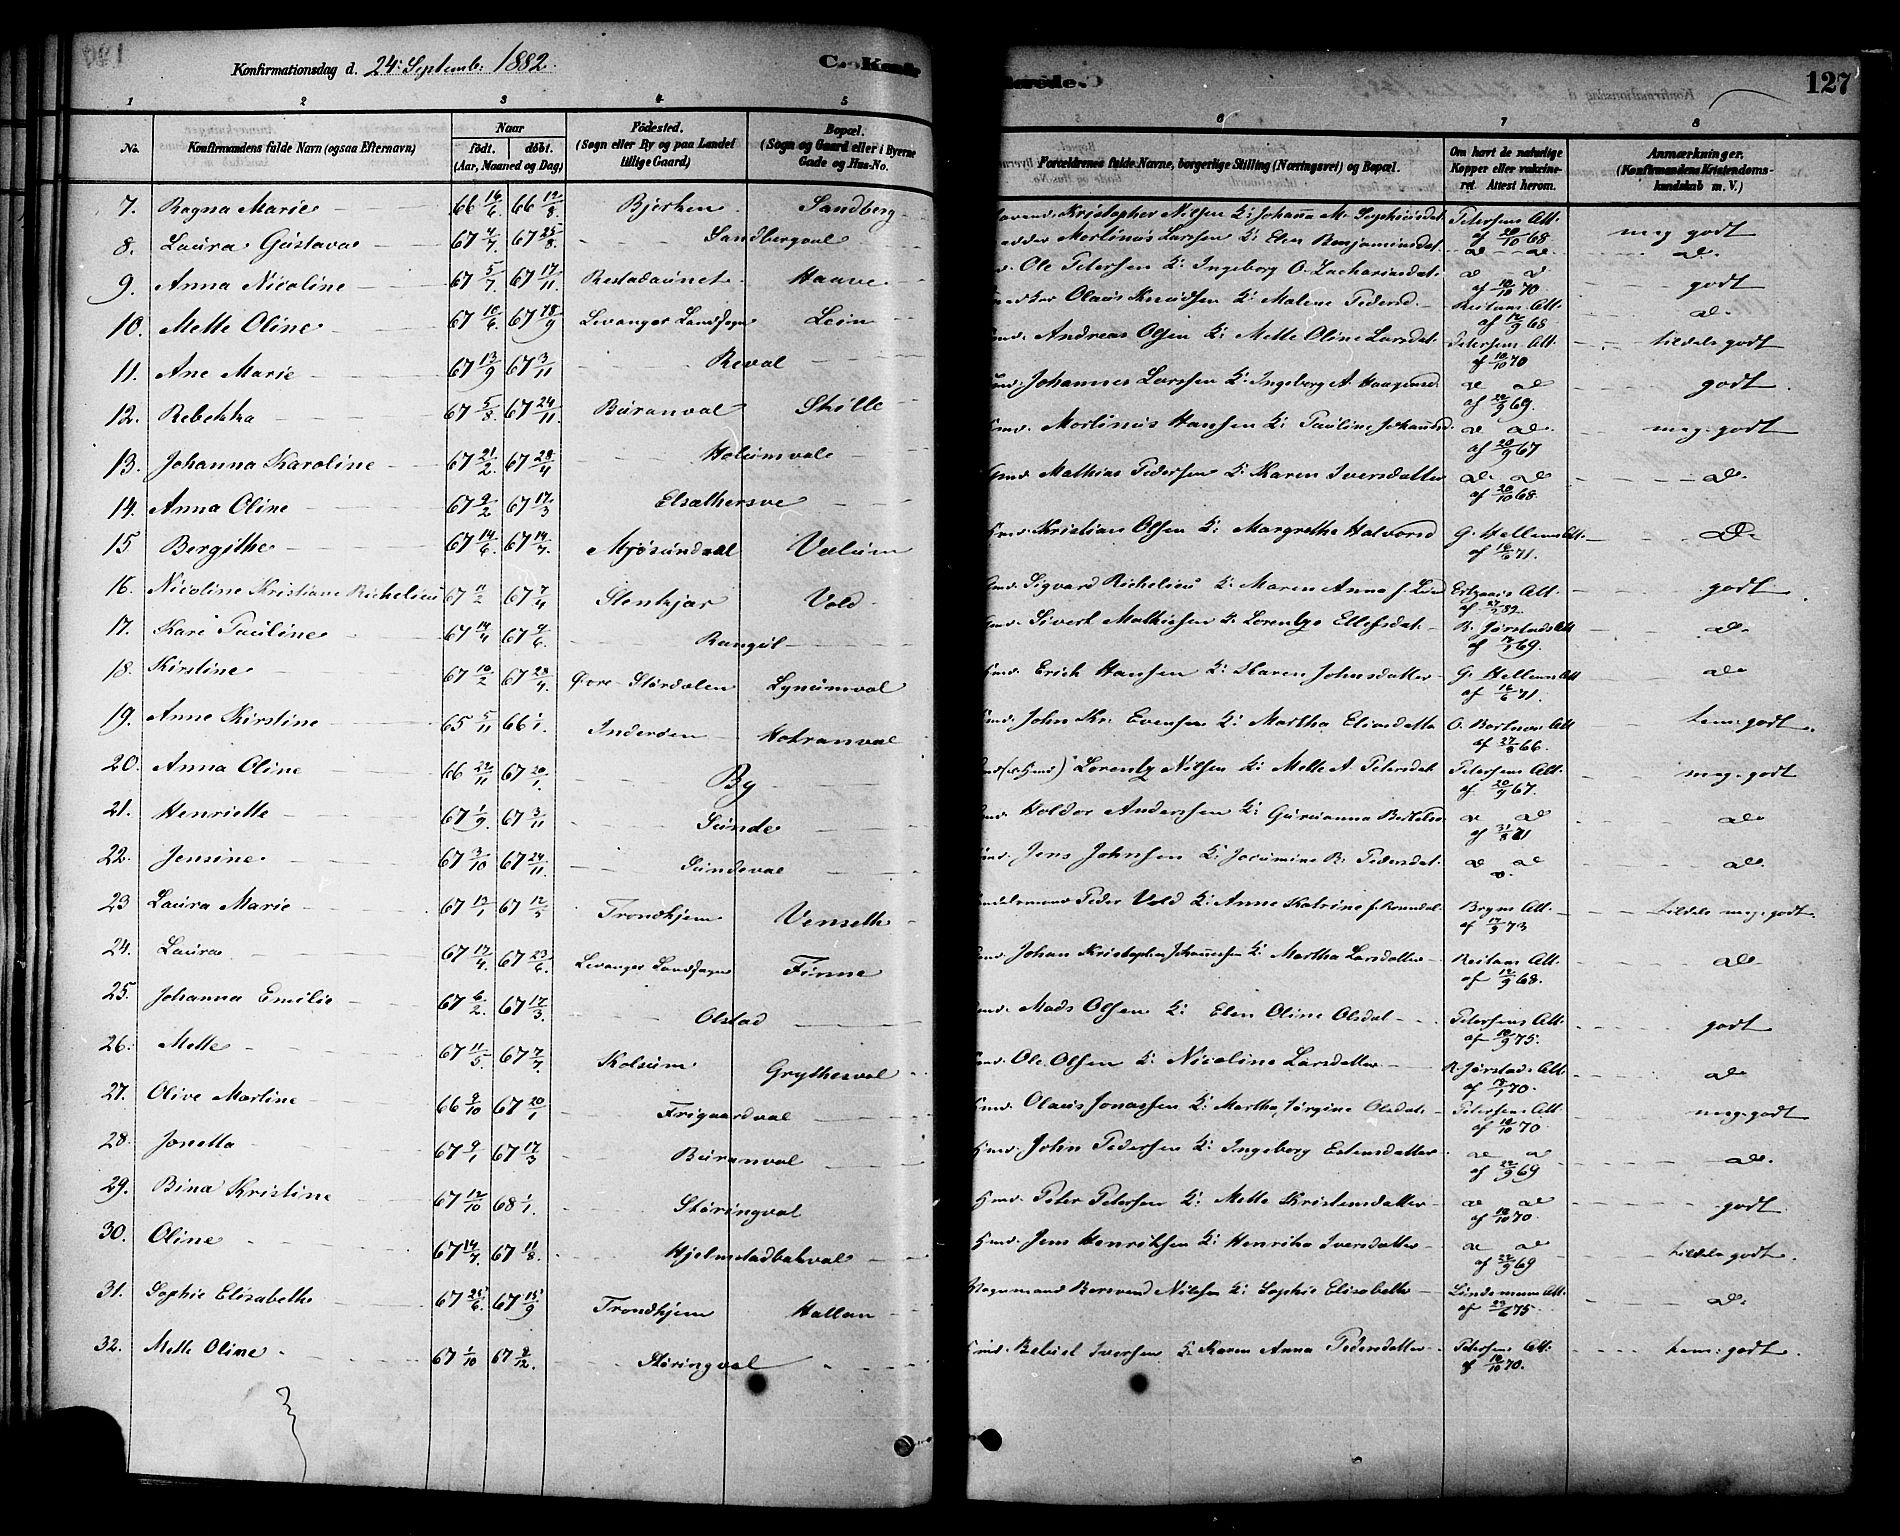 Konfirmationsdag d. 24. Septemb. 1882.
C. Konfir
merede.
127
1 2 3 4 5 6 7 8
No.
Konfirmandens fulde Navn (ogsaa Efternavn)
Naar
født. døbt.
(Aar, Maaned og Dag)
Fødested.
(Sogn eller By og paa Landet tillige Gaard)
Bopæl.
(Sogn og Gaard eller i Byerne Gade og Hus-No.
Forældrenes fulde Navne, borgerlige Stilling (Næringsvei) og Bopæl.
Om havt de naturlige Kopper eller vaccineret. Attest herom.
Anmærkninger.
(Konfirmandens Kristendomskundskab m. V.)
7. Ragna Marie 66 16/6 66 12/8 Bjerken Sandberg Kristopher Nilsen K: Johanna M. Petersens Att. af 20/10 68 meg godt
8. Laura Gustava 67 4/7 67 25/8 Sandbergval Martinus Larssen K: Elen Benjaminsdat. do do do
9. Anna Nicoline 67 5/7 67 17/11 Restadaunet Haave Ole Petersen K: Ingeborg O. Zachariasdat. do do af 10/10 70 godt
10. Mette Oline 67 10/6 67 18/9 Levanger Landsogn Lein Olaus Knudsen K: Malene Pedersd. Reitans Att. af 12/9 68 do.
11. Ane Marie 67 13/9 67 3/11 Reval Andreas Olsen K: Mette Oline Larsdat. Petersens Att. af 10/10 70 tildels godt
12. Rebekka 67 5/8 67 24/11 Buranval Skille Johannes Larssen K: Ingeborg A. Haagensd. do do af 22/9 69. godt.
13. Johanna Karoline 67 21/2 67 28/4 Holumvale Martinus Hansen K: Pauline Johansd. do do. af 20/9 67 meg. godt
14. Anna Oline 67 9/2 67 17/3 Elsathersve Gmd. Mathias Pedersen K: Karen Iversdatter do do. af 20/10 68. do.
15 Bergithe 67 14/6 67 14/7 Mjøsundval Valum Kristian Olsen K: Margrethe Halvorsd G. Hellems Att. af 16/6 71. do.
16. Nicoline Kristiane Richelieu 67 11/2 67 7/4 Stenkjær Vold Gmd. Sigvard Richelieu K: Maren Anna f. Att. godt.
17. Kari Pauline 67 14/4 67 9/6 Rangul Gmd. Sivert Mathiesen K: Lorentze Ellefsdat. R. Jørstads Att do.
18. Kirstine 67 10/2 67 28/4 Øvre Stördalen Lynumval Erich Hansen K: Karen Johnsdatter G. Hellems Att af 16/6 71. do
19. Anne Kirstine 65 5/11 66 1/1. Inderøen Hotranval John Kr. Evensen K: Martha Eliasdatter Att. af 27/8 66. tem: godt.
20. Anna Oline 66 22/11 67 20/1. By Lorents Nilsen K: Mette A. Petersdat. Petersens Att. af 20/9 67. meg. godt
21. Henriette 67 1/9. 67 3/11 Sunde Holder Anderssen K: Gurianna do do af 31/8 71 do
22. Jensine 67 3/10 67 24/11. Sundeval Jens Johnsen K: Jacomine B. Pedersdat. do do do.
23 Laura Marie 67 12/5 Trondhjem Venseth Peder Vold K: Anne Katrine f. Bryns Att. tildels meg. godt.
24. Laura 67 17/4. 67 23/6. Levanger Landsogn Finne Johan Kristopher Johannessen K: Martha Larsdatter Reitans Att. af 12/9 68. do
25. Johanna Emilie 67 6/2. 67 17/3. Olstad Mads Olsen K: Elen Oline Olsdat Petersens Att. af 10/9 75. godt
26. Mette 67 11/5. 67 7/7. Kolsum Grythesval Ole Olsen K: Nicoline Larsdatter R. Jørstads Att. do
27. Olive Martine 66 9/10 67 20/1 Frigaardval Olaus Jonassen K: Martha Jørgine Olsdat. Petersens Att. af 10/10 70. meg. godt
28. Jonetta 67 9/1 67 17/3 Buranval John Pedersen K: Ingeborg Estensdatter do do af 22/9 69 do.
29. Bina Kristine 67 12/10 68 1/1. Støringval Peter Petersen K: Mette Kristensdatter do do af 10/10 70. godt
30. Oline 67 14/7. 67 11/8. Hjelmstadbakval Jens Henriksen K: Henrika Iversdatter do do af 22/9 69 tildels godt.
31. Sophie Elisabeth 67 25/6. 67 15/9 Trondhjem Hallan Nilsen K: Sophie Elisabeth Lindemanns Att. af 23/6 75. do.
32. Mette Oline 67 1/10 67 8/12. Støringval Beluel Iversen K: Karen Anna Pedersdatter Petersens Att. af 10/10 70. tem: godt.